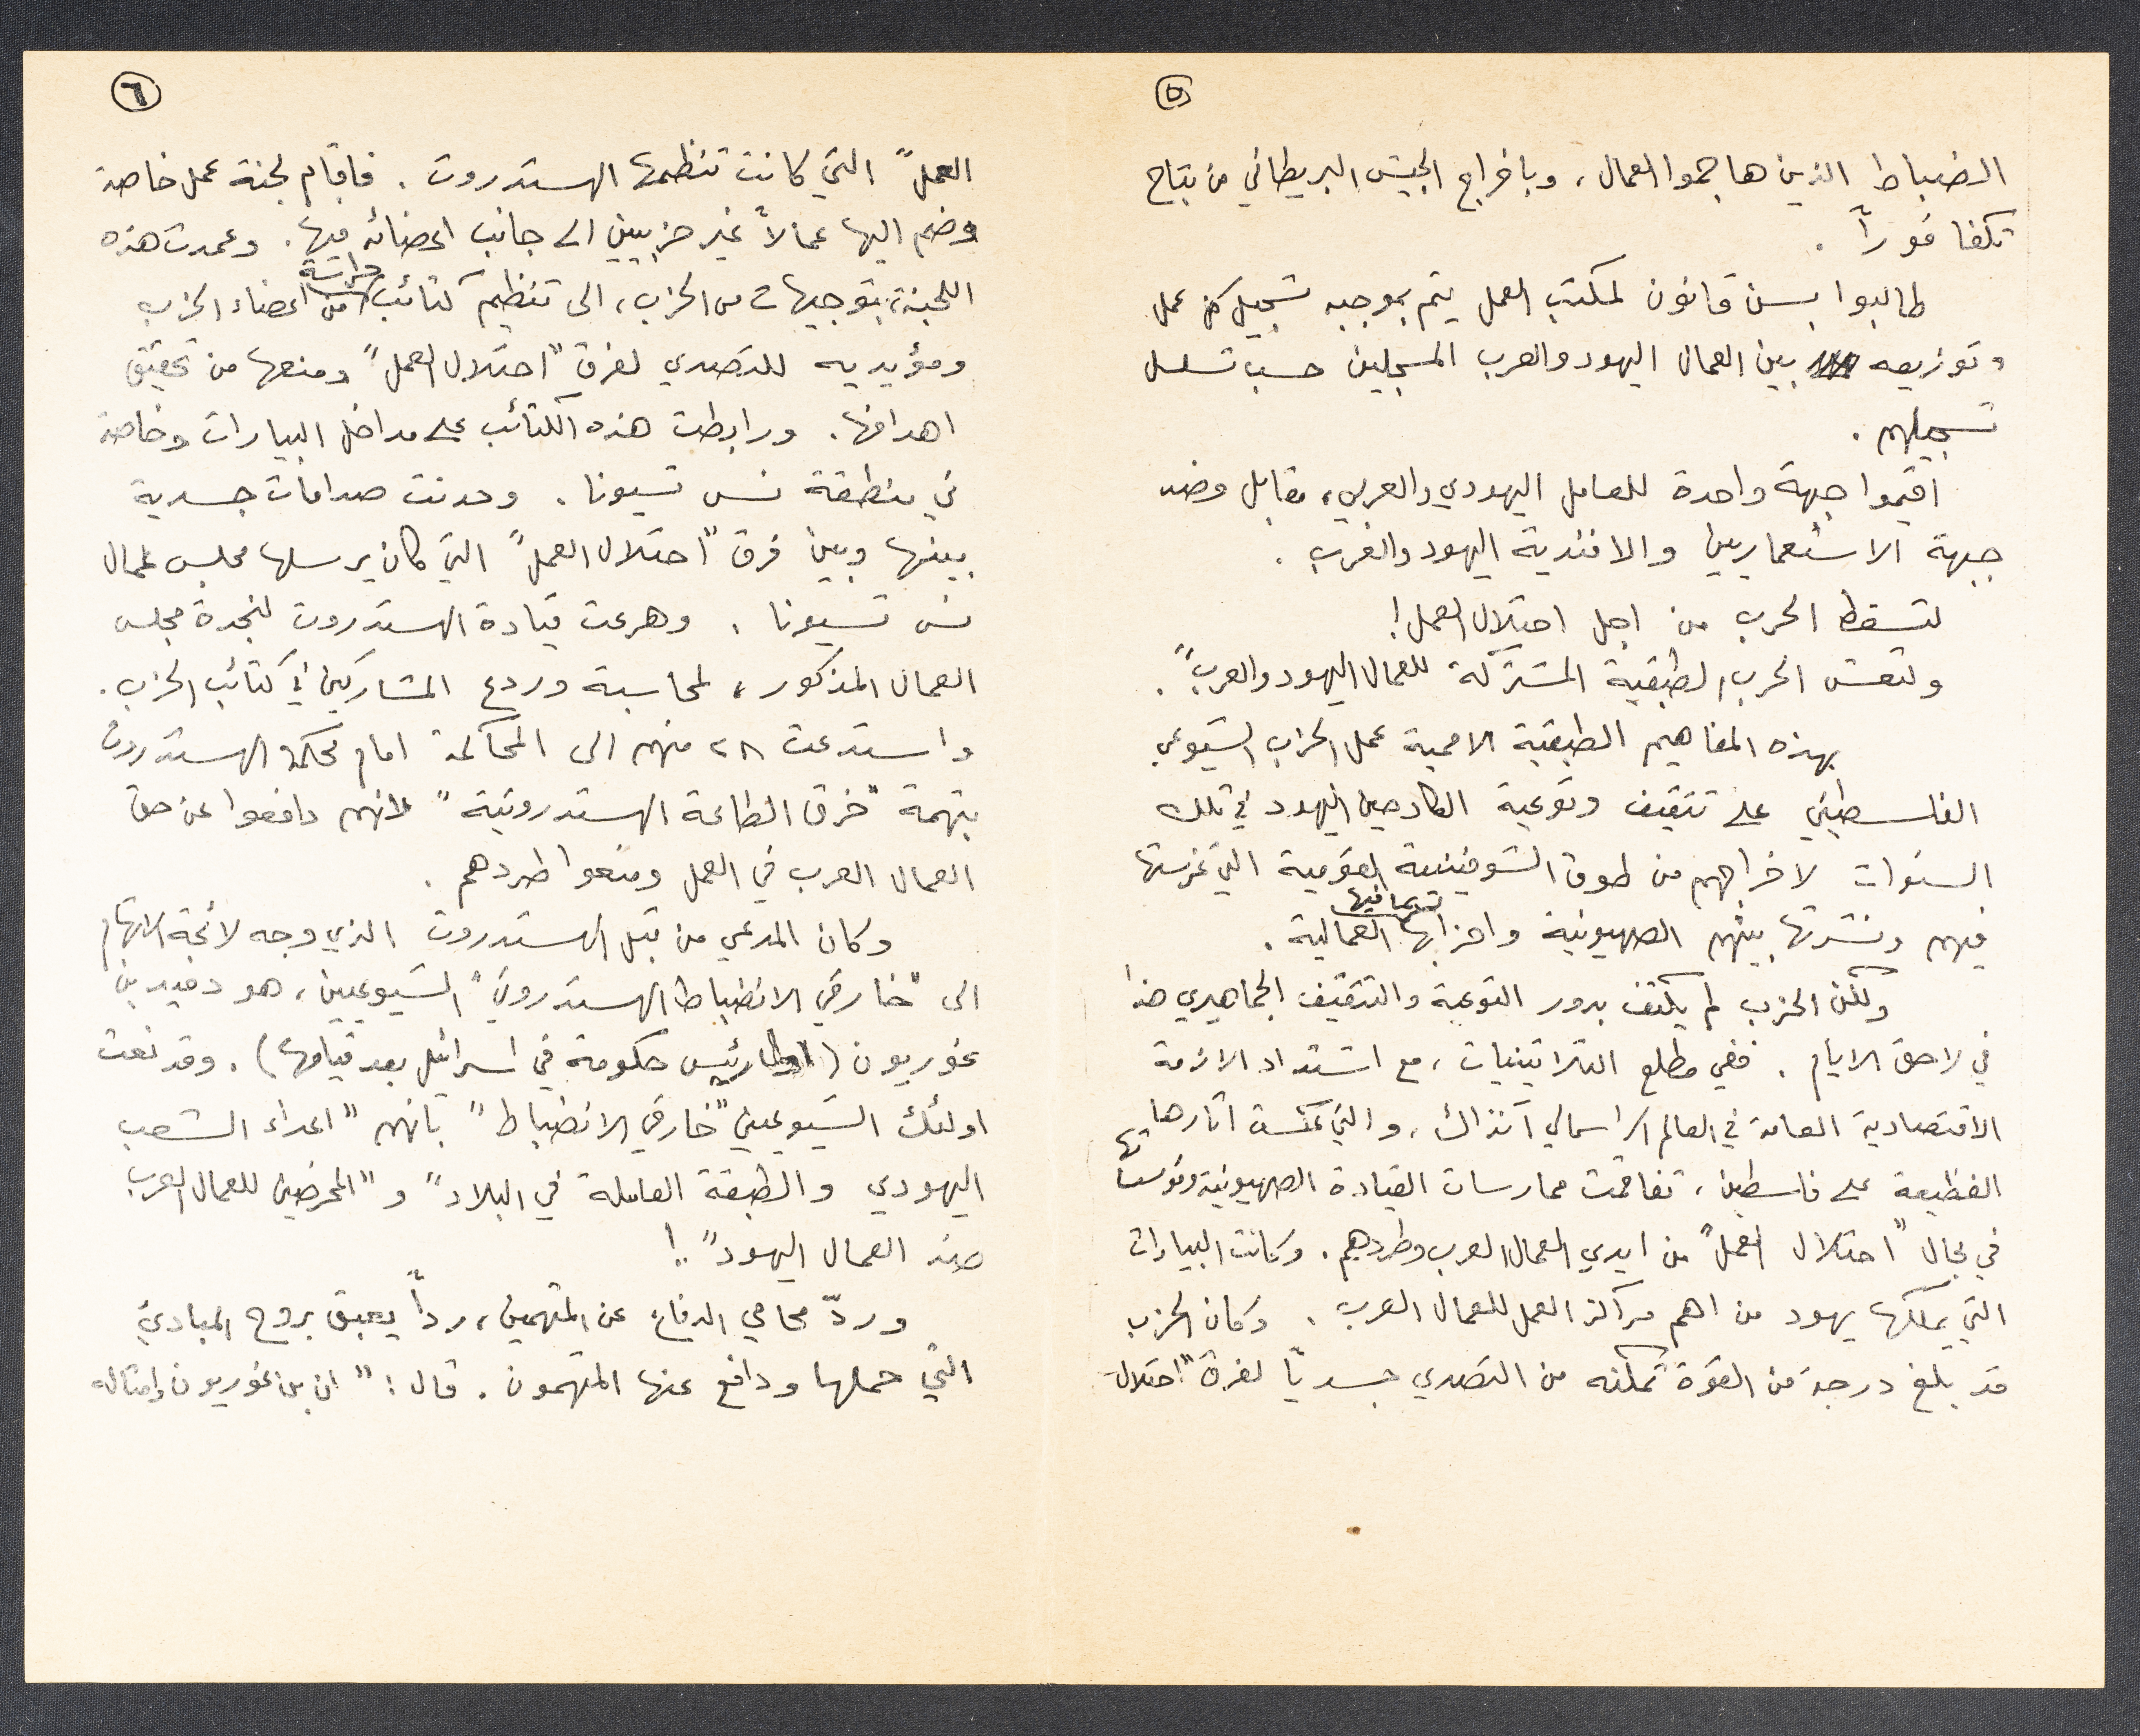 ٥
الضباط الذين هاجموا العمال، وباخراج الجيش البريطاني من بتاح
تكفا فوراً.
طالبوا بسن قانون لمكتب العمل يتم بموجبه تسجيل كل عمل
وتوزيعه بين العمال اليهود والعرب المسجلين حسب تسلسل
تسجيلهم.
اقيموا جبهة واحدة للعامل اليهودي والعربي، مقابل وضد
جبهة الاستعماريين والافندية اليهود والعرب.
لتسقط الحرب من اجل احتلال العمل!
ولتعش الحرب الطبقية المشتركة للعمال اليهود والعرب".
بهذه المفاهيم الطبقية الاممية عمل الحزب الشيوعي
الفلسطيني على تثقيف وتوعية الكادحين اليهود في تلك
السنوات لاخراجهم من طوق الشوفينية القومية التي غرستها
فيهم ونشرتها بينهم الصهيونية واحزابها بما فيها العمالية.
ولكن الحزب لم يكتف بدور التوعية والتثقيف الجماهيري هذا
في لاحق الايام. ففي مطلع الثلاثينيات، مع اشتداد الازمة
الاقتصادية العامة في العالم الراسمالي آنذاك، والتي عكست آثارها
الفظيعة على فلسطين، تفاقمت ممارسات القيادة الصهيونية ومؤسساتها
في مجال "احتلال العمل" من ايدي العمال العرب وطردهم. وكانت البيارات
التي يملكها يهود من اهم مراكز العمل للعمال العرب. وكان الحزب
قد بلغ درجة من القوة تمكنه من التصدي جسدياً لفرق "احتلال
٦
العمل" التي كانت تنظمها الهستدروت. فاقام لجنة عمل خاصة
وضم اليها عمالاً غير حزبيين الى جانب اعضائه فيها. وعمدت هذه
اللجنة، بتوجيهات من الحزب، الى تنظيم كتائب حراسة من اعضاء الحزب
ومؤيديه للتصدي لفرق "احتلال العمل" ومنعها من تحقيق
اهدافها. ورابطت هذه الكتائب على مداخل البيارات وخاصة
في منطقة نس تسيونا. وحدثت صدامات جسدية
بينها وبين فرق "احتلال العمل" التي كان يرسلها مجلس عمال
نس تسيونا. وهرعت قيادة الهستدروت لنجدة مجلس
العمال المذكور، لمحاسبة وردع المشاركين في كتائب الحزب.
واستدعت ٢٨ منهم الى المحاكمة امام محكمة الهستدروت
بتهمة "خرق الطاعة الهستدروتية" لانهم دافعوا عن حق
العمال العرب في العمل ومنعوا طردهم.
وكان المدعي من قبل الهستدروت الذي وجه لائحة الاتهام
الى "خارقي الانضباط الهستدروتي" الشيوعيين، هو دفيد بن
غوريون (اول رئيس حكومة في اسرائيل بعد قيامها). وقد نعت
اولئك الشيوعيين "خارقي الانضباط" بانهم "اعداء الشعب
اليهودي والطبقة العاملة في البلاد" و "المحرضين للعمال العرب
ضد العمال اليهود"..!
وردّ محامي الدفاع عن المتهمين، رداً يعبق بروح المبادئ
التي حملها ودافع عنها المتهمون. قال: "ان بن غوريون وامثاله